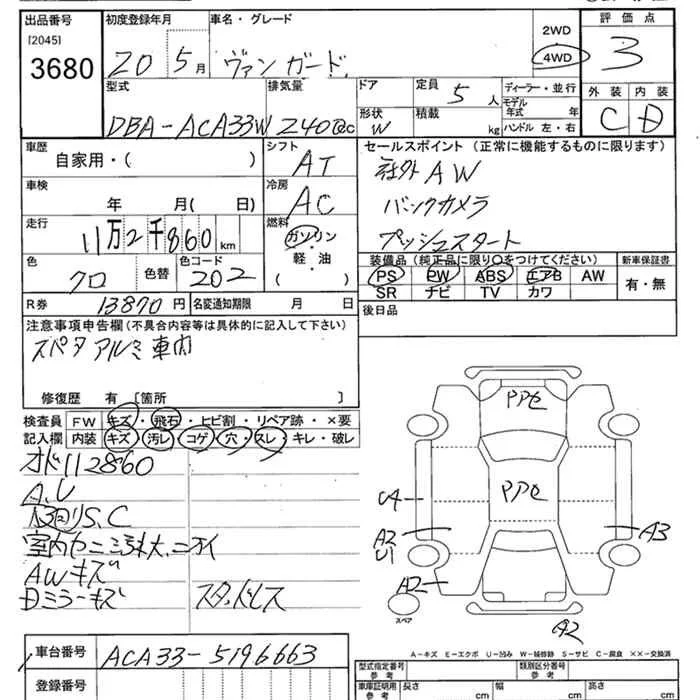 出品番号
[2045]
3680
初度登録年月
20 5月
車名・グレード
ヴァンガード
2WD
4WD
評価点
3
型式
DBA-ACA33W
排気量
2400cc
ドア
形状
W
定員
5人
積載
kg
ディーラー・並行
モデル
年式 年
ハンドル 左・右
外装 内装
C D
車歴
自家用・( )
シフト
AT
車検
年 月( 日)
冷房
AC
走行
11万2千860km
燃料
ガソリン
軽・油
( )
色
クロ
色替
色コード
202
R券
13870円
名変通知期限 月 日
セールスポイント(正常に機能するものに限ります)
社外AW
バックカメラ
プッシュスタート
装備品(純正品に限り○をつけてください)
PS PW ABS エアB AW
SR ナビ TV カワ
新車保証書
有・無
後日品
注意事項申告欄(不具合内容等は具体的に記入して下さい)
スペタアルミ車内
修復歴 有 [箇所 ]
検査員
記入欄
FW キズ・飛石・ヒビ割・リペア跡・×要
内装 キズ・汚レ・コゲ・穴・スレ・キレ・破レ
オド112860
A.U
S.C
AWキズ
Dミラーキズ
スタッドレス
PPC
PPC
U4
A2
U1
A3
A2
A2
スペア
A-キズ E-エクボ U-凹み W-補修跡 S-サビ C-腐食 ××-交換済
車台番号
ACA33-5196663
登録番号
型式指定番号
類別区分番号
車庫証明用
参考
長さ cm
幅 cm
高さ cm